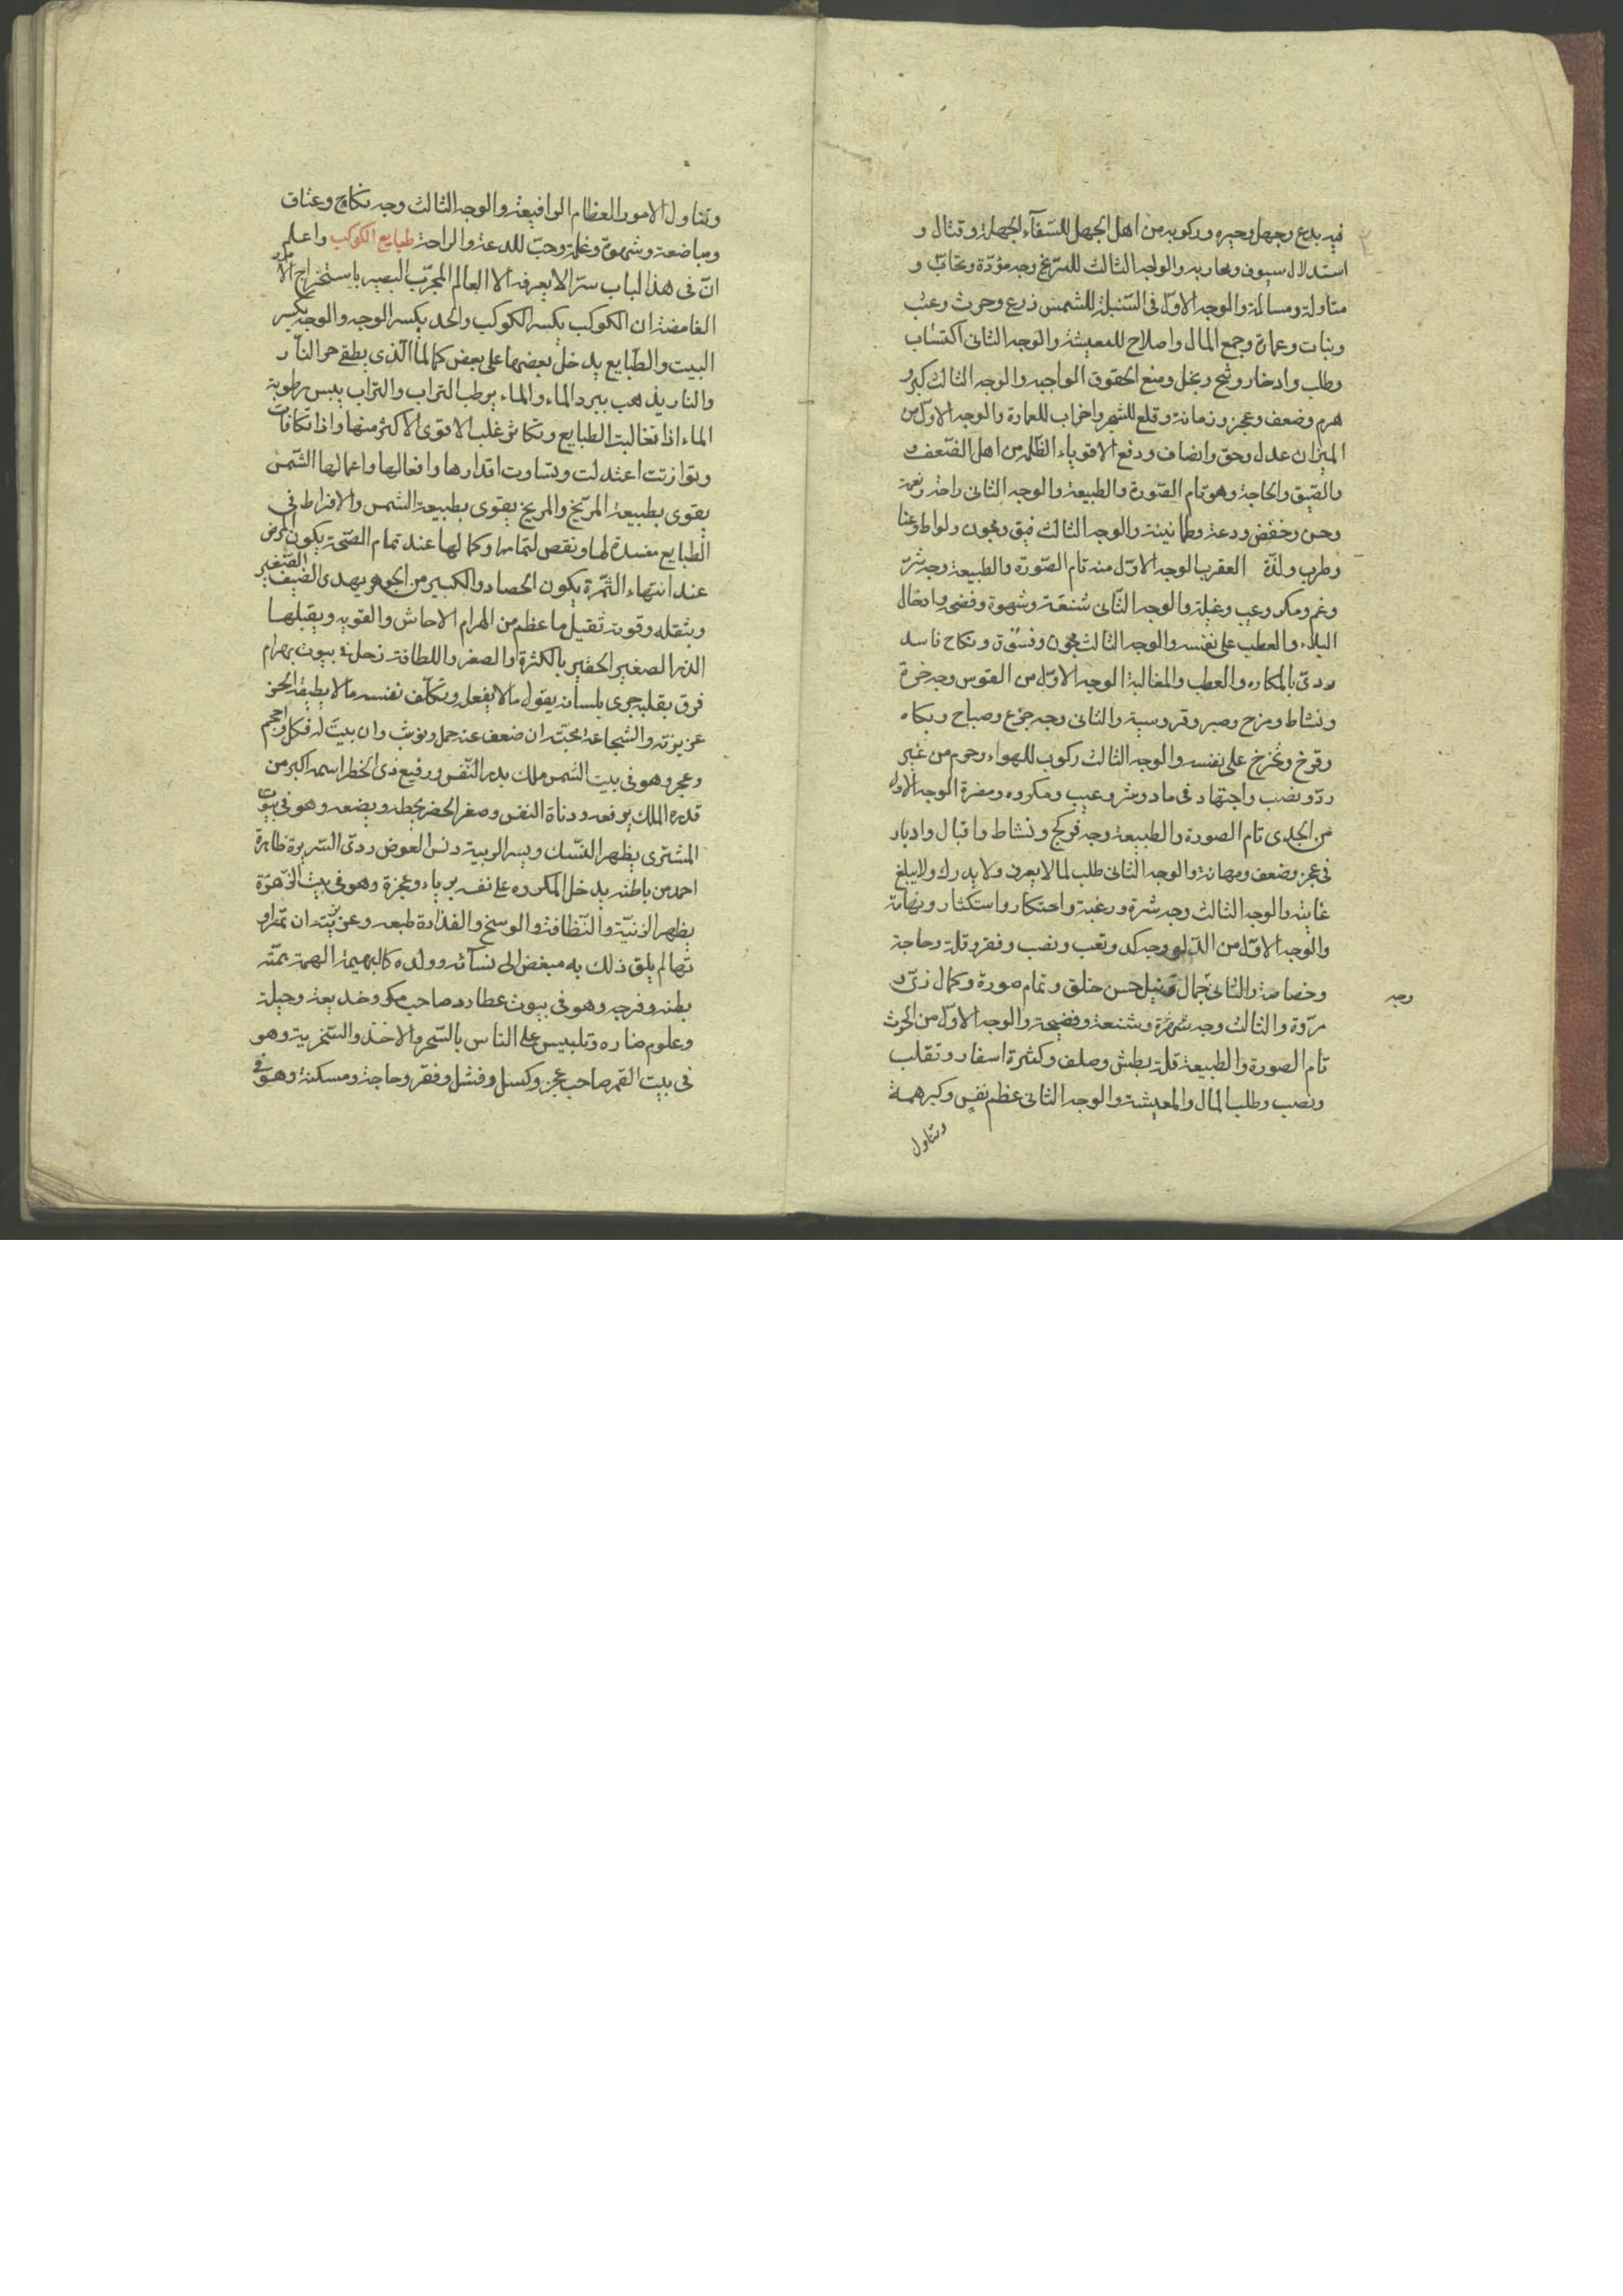 فيه بدع وجهل وحيره وركوبه من اهل الجهل للسفآء الجهلة وقتال و
استدلال سيوف ومحاربه والوجه الثالث للمريخ وجه مودّة وتحابّ و
مناولة ومسالة والوجه الاول فى السنبلة للشمس زرع وحرث وعنب
ونبات وعمارة وجمع المال واصلاح للمعيشة والوجه الثانى اكتساب
وطلب وادخار وشح وبخل ومنع الحقوق الواجبه والوجه الثالث كبر و
هرم وضعف وعجز وزمانة وقلع للشجر واخراب للعمارة والوجه الاول من
الميزان عدل وحق وانصاف ودفع الاقوياء الظلمه من اهل الضعف و
والضيق والحاجة وهو تمام الصورة والطبيعة والوجه الثانى راحة ونعمة
وحسن وخفض ودعة وطمانينة والوجه الثالث فسق ومجون ولواط وغنا
وطرب ولذة العقرب الوجه الاول منه تام الصورة والطبيعة وجه شر
وغم ومكر وعيب وغيلة والوجه الثانى شنعة وشهوة وفضى وادخال
البلاء والعطب على نفسه والوجه الثالث مجون وفسوق ونكاح فاسد
ردىّ بالمكاره والعطب والمغالبة الوجه الاول من القوس وجه خرة
ونشاط ومزح وصبر وفروسية والثانى وجه جزع وصياح وبكاه
وقرخ وتخرخ على نفسه والوجه الثالث ركوب للهواء وحرم من غير
ردّ ونصب واجتهاد فى ما د وشر وعيب ومكروه ومضرة الوجه الاول
من الجدى تام الصورة والطبيعة وجه فرح ونشاط واقبال وادبار
فى عجز وضعف ومهانة والوجه الثانى طلب لما لا يعرف ولا يدرك ولا يبلغ
غايته والوجه الثالث وجه شرة ورغبة واحتكار واستكثار ونهامة
والوجه الاول من الدلو وجه كد وتعب ونصب وفقر وقلة وحاجة
وخصاصة والثانى جمال ونبل حسن خلق وتمام صورة وكمال زىّ و
وجه
مروّة والثالث وجه شهرة وشنعة وفضيحة والوجه الاول من الحوت
تام الصورة والطبيعة قلة بطش وصلف وكثرة اسفار وتقلب
ونصب وطلب المال والمعيشة والوجه الثانى عظم نفس وكبر همة
وتناول
وتناول الامور العظام الرافيعة والوجه الثالث وجه نكاح وعناق
ومباضعة وشهوة وغلمة وحبّ للدعة والراحة طبايع الكوكب واعلم
انّ فى هذا الباب سرّا لا يعرفه الا العالم المجرّب البصير باستخراج الامور
الغامضة ان الكوكب يكسر الكوكب والحد يكسر الوجه والوجه يكسر
البيت والطبايع يدخل بعضها على بعض كما لما الذى يطفى حر النار
والنار يذهب ببرد الماء والماء يرطب التراب والتراب ييبس رطوبة
الماء اذا تغالبت الطبايع وتكاثر غلب الاقوى الاكثر منها واذا تكافات
وتوازنت اعتدلت وتساوت اقدارها وافعالها واعمالها الشمس
يقوى بطبيعة المريخ والمريخ يقوى بطبيعة الشمس والافراط فى
الطبايع مفسدة لها ونقص لتمامها وكمالها عند تمام الصحة يكون المرض
عند انتهاء الثمرة يكون الحصاد والكبير من الجوهر يهدى الضيف الصغير
وبثقله وقوته ثقيل ما عظم من الهرام الاحاش والقويه ويقبلها
الذر الصغير الحقير بالكثرة والصغر واللطافة زحل فى بيوت بهرام
فرق بقلبه جرى بلسانه يقول ما لا يفعل ويتكلف نفسه ما لا يطيقه الحز
عزيزته والشجاعة محبته ان ضعف عنه حمل ويوثب وان بيت له فكل واحجم
وعجر وهو فى بيت الشمس ملك بدر النفس ورفيع ذى الخطر اسمه اكبر من
قدره الملك يرفعه ودناة النفس وصغر الخطر يحطه ويضعه وهو فى بيوت
المشترى يظهر النسك ويسر الريبة دنس العوض ردىّ السريرة ظاهرة
احمد من باطنه يدخل المكروه على نفسه برياء وعجزة وهو فى بيت الزهرة
يظهر الزنية والنظافة والوسخ والقذارة طبعه وعزيزته ان تمرا و
تها لم يلق ذلك به مبغض الى نسآئه وولده كالبهيمة الهمة بهمته
بطنه وفرجه وهو فى بيوت عطارد صاحب مكر وخديعة وحيلة
وعلوم ضاره وتلبيس على الناس بالسحر والاخذ والسخرية وهو
فى بيت القمر صاحب عجز وكسل وفشل وفقر وحاجة ومسكنة وهو فى